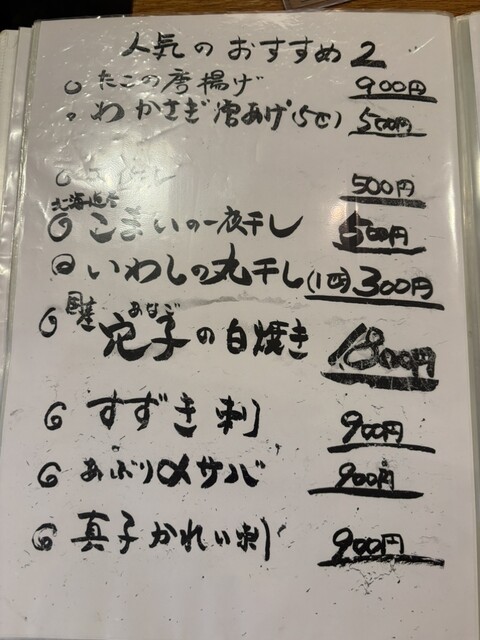 人気のおすすめ2
たこの唐揚げ 900円
わかさぎ唐あげ(5匹) 500円
500円
北海道産
こまいの一夜干し 500円
いわしの丸干し(1匹) 300円
国産 あなご
穴子の白焼き 1800円
すずき刺 900円
あぶり〆サバ 900円
真子かれい刺 900円